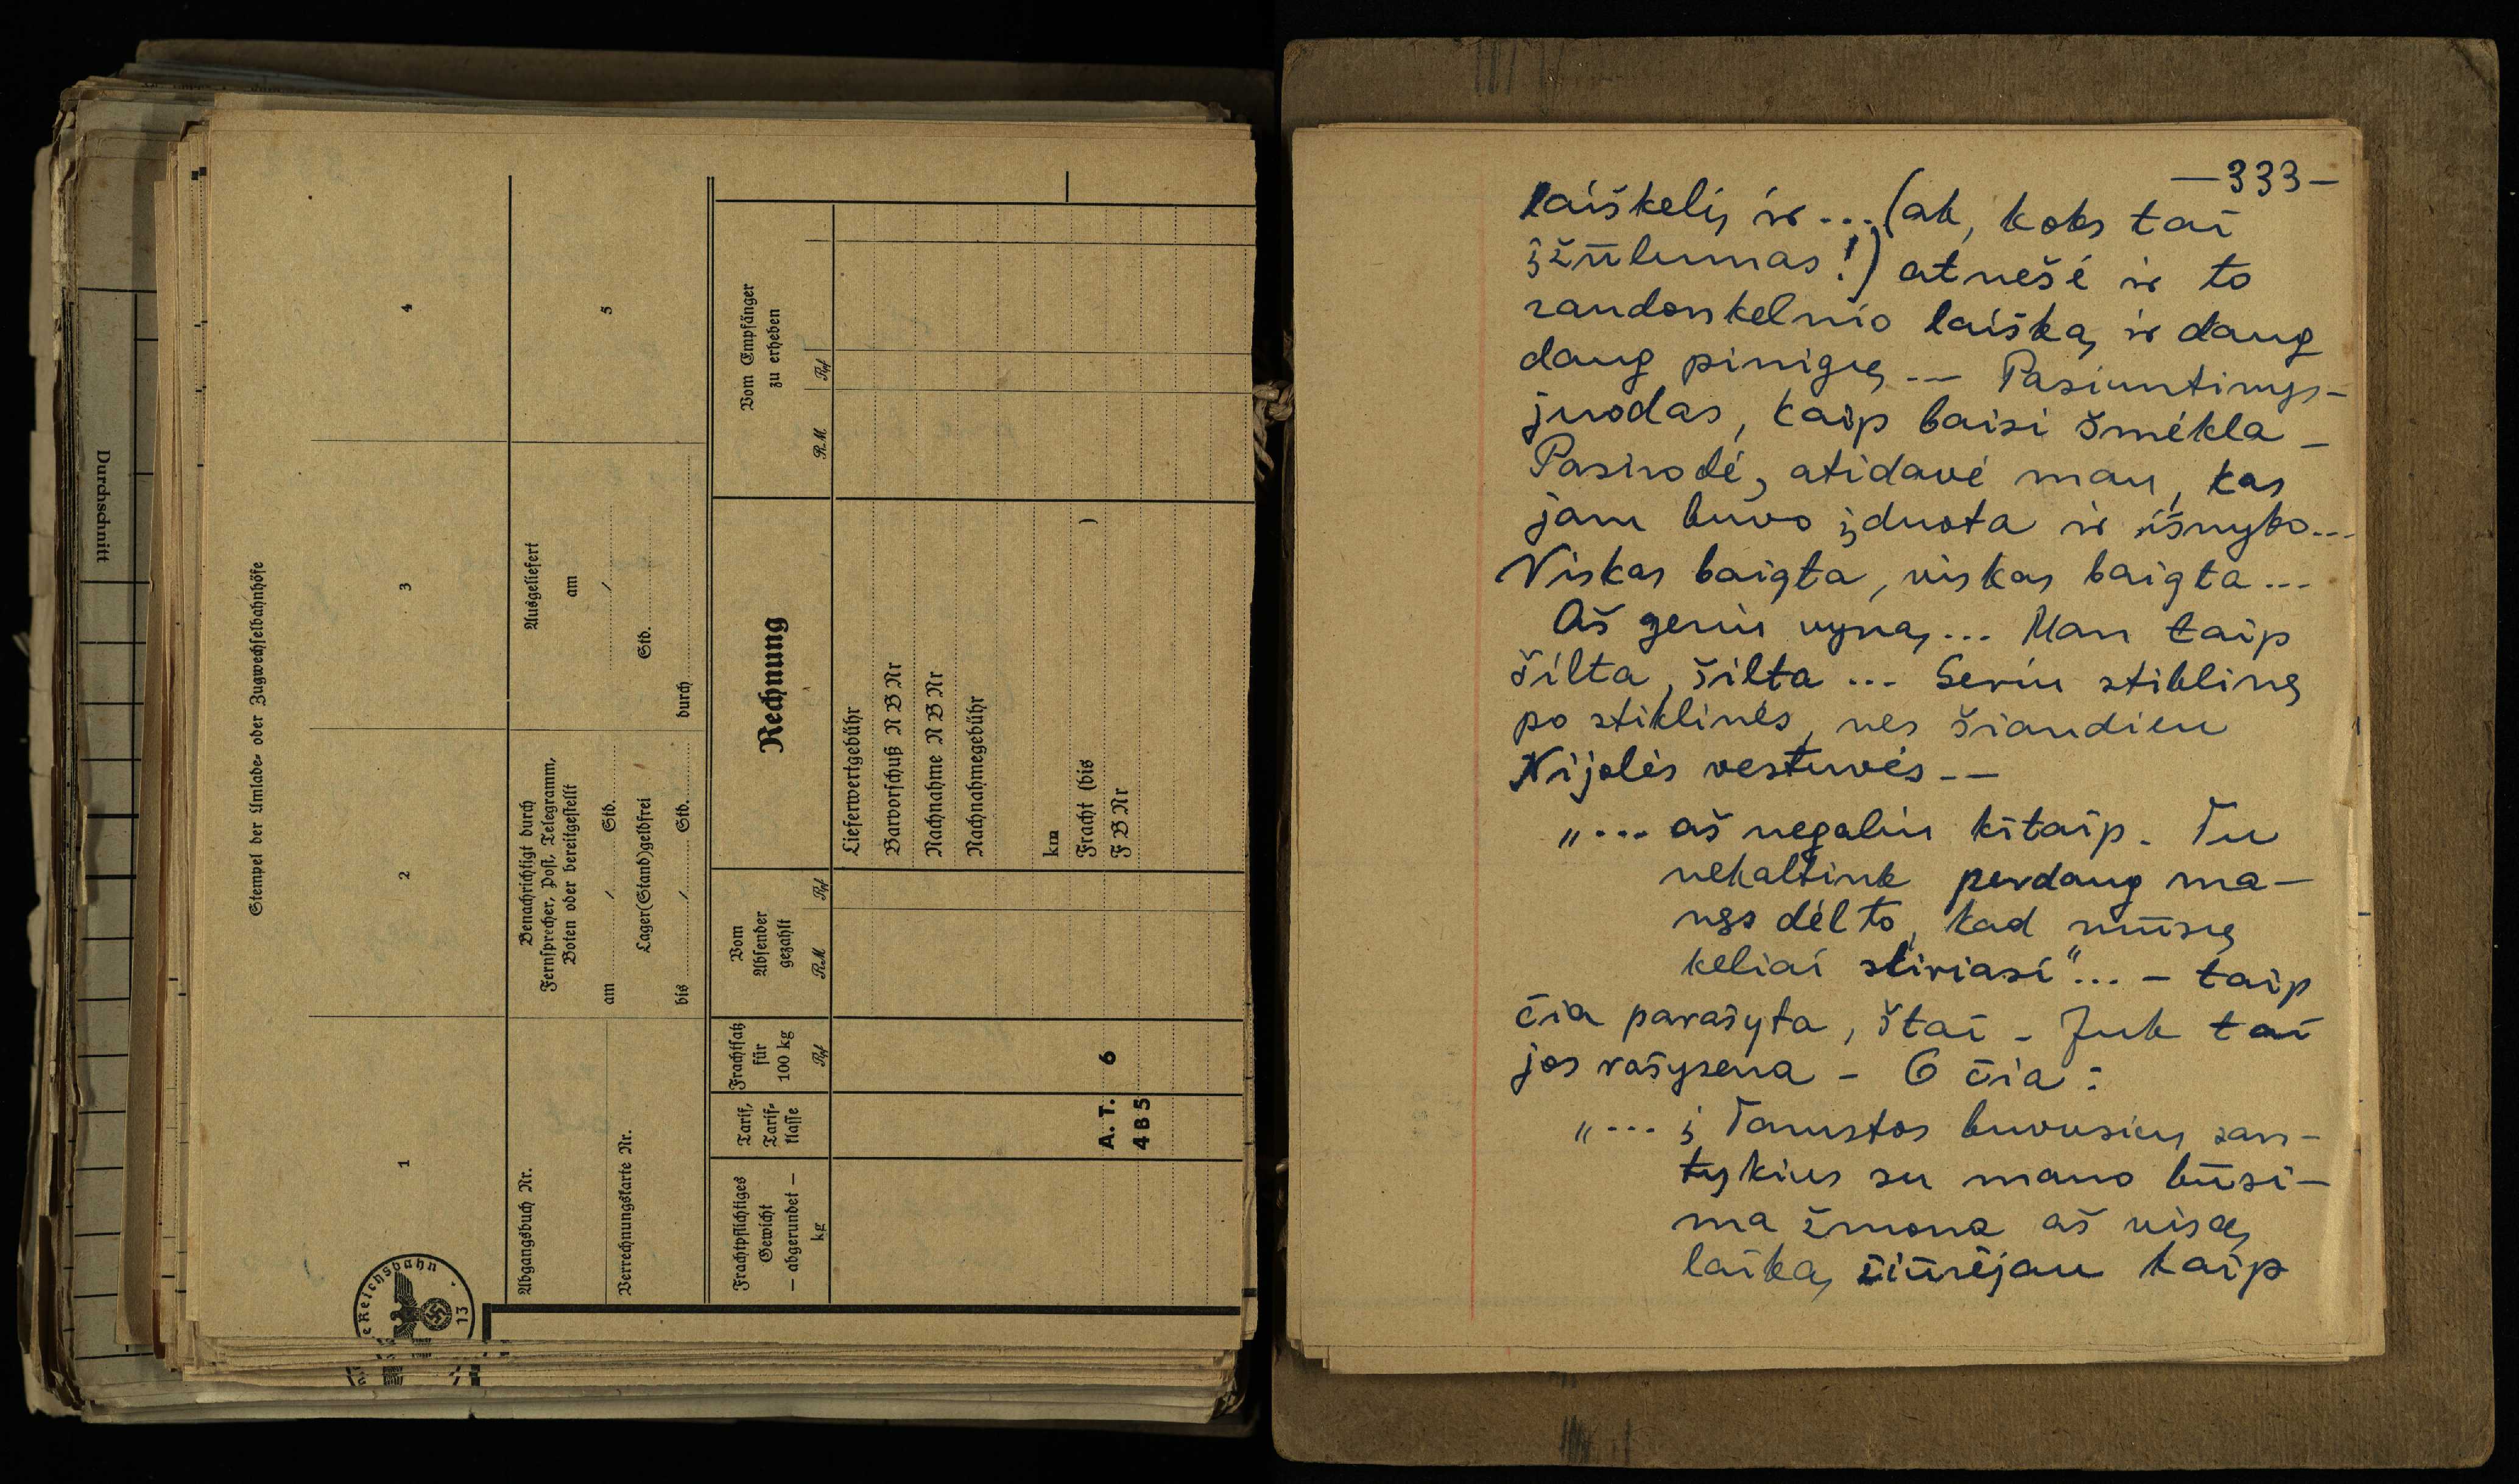 Durchschnitt
Stempel der Umlade- oder Zugwechselbahnhöfe
1
2
3
4
Abgangsbuch Nr.
Verrechnungskarte Nr.
Benachrichtigt durch
Fernsprecher, Post, Telegramm,
Boten oder bereitgestellt
am / Std.
Lager(Stand)geldfrei
bis / Std.
Ausgeliefert
am
/
Std.
durch
5
Frachtpflichtiges
Gewicht
— abgerundet —
kg
Tarif,
Tarif-
klasse
Frachtsatz
für
100 kg
Rpf
Vom
Absender
gezahlt
RM Rpf
Rechnung
Vom Empfänger
zu erheben
RM Rpf
Lieferwertgebühr
Barvorschuß N B Nr
Nachnahme N B Nr
Nachnahmegebühr
km
Fracht (bis )
F B Nr
A. T. 6
4 B 5
e Reichsbahn
13
—333—
laiškelį ir... (ak, koks tai
įžūlumas!) atnešė ir to
raudonkelnio laišką ir daug
daug pinigų -— Pasiuntinys-
juodas, kaip baisi šmėkla —
Pasirodė, atidavė man, kas
jam buvo įduota ir išnyko...
Viskas baigta, viskas baigta...
Aš geriu vyną... Man taip
šilta, šilta... Geriu stiklinę
po stiklinės, nes šiandien
Nijolės vestuvės -—
„... aš negaliu kitaip. Tu
nehaltink perdaug ma-
nęs dėl to, kad mūsų
keliai skiriasi"... - taip
čia parašyta, štai - Juk tai
jos rašysena - O čia:
„... į Tamstos buvusius san-
tykius su mano būsi-
ma žmona aš visą
laiką žiūrėjau kaip